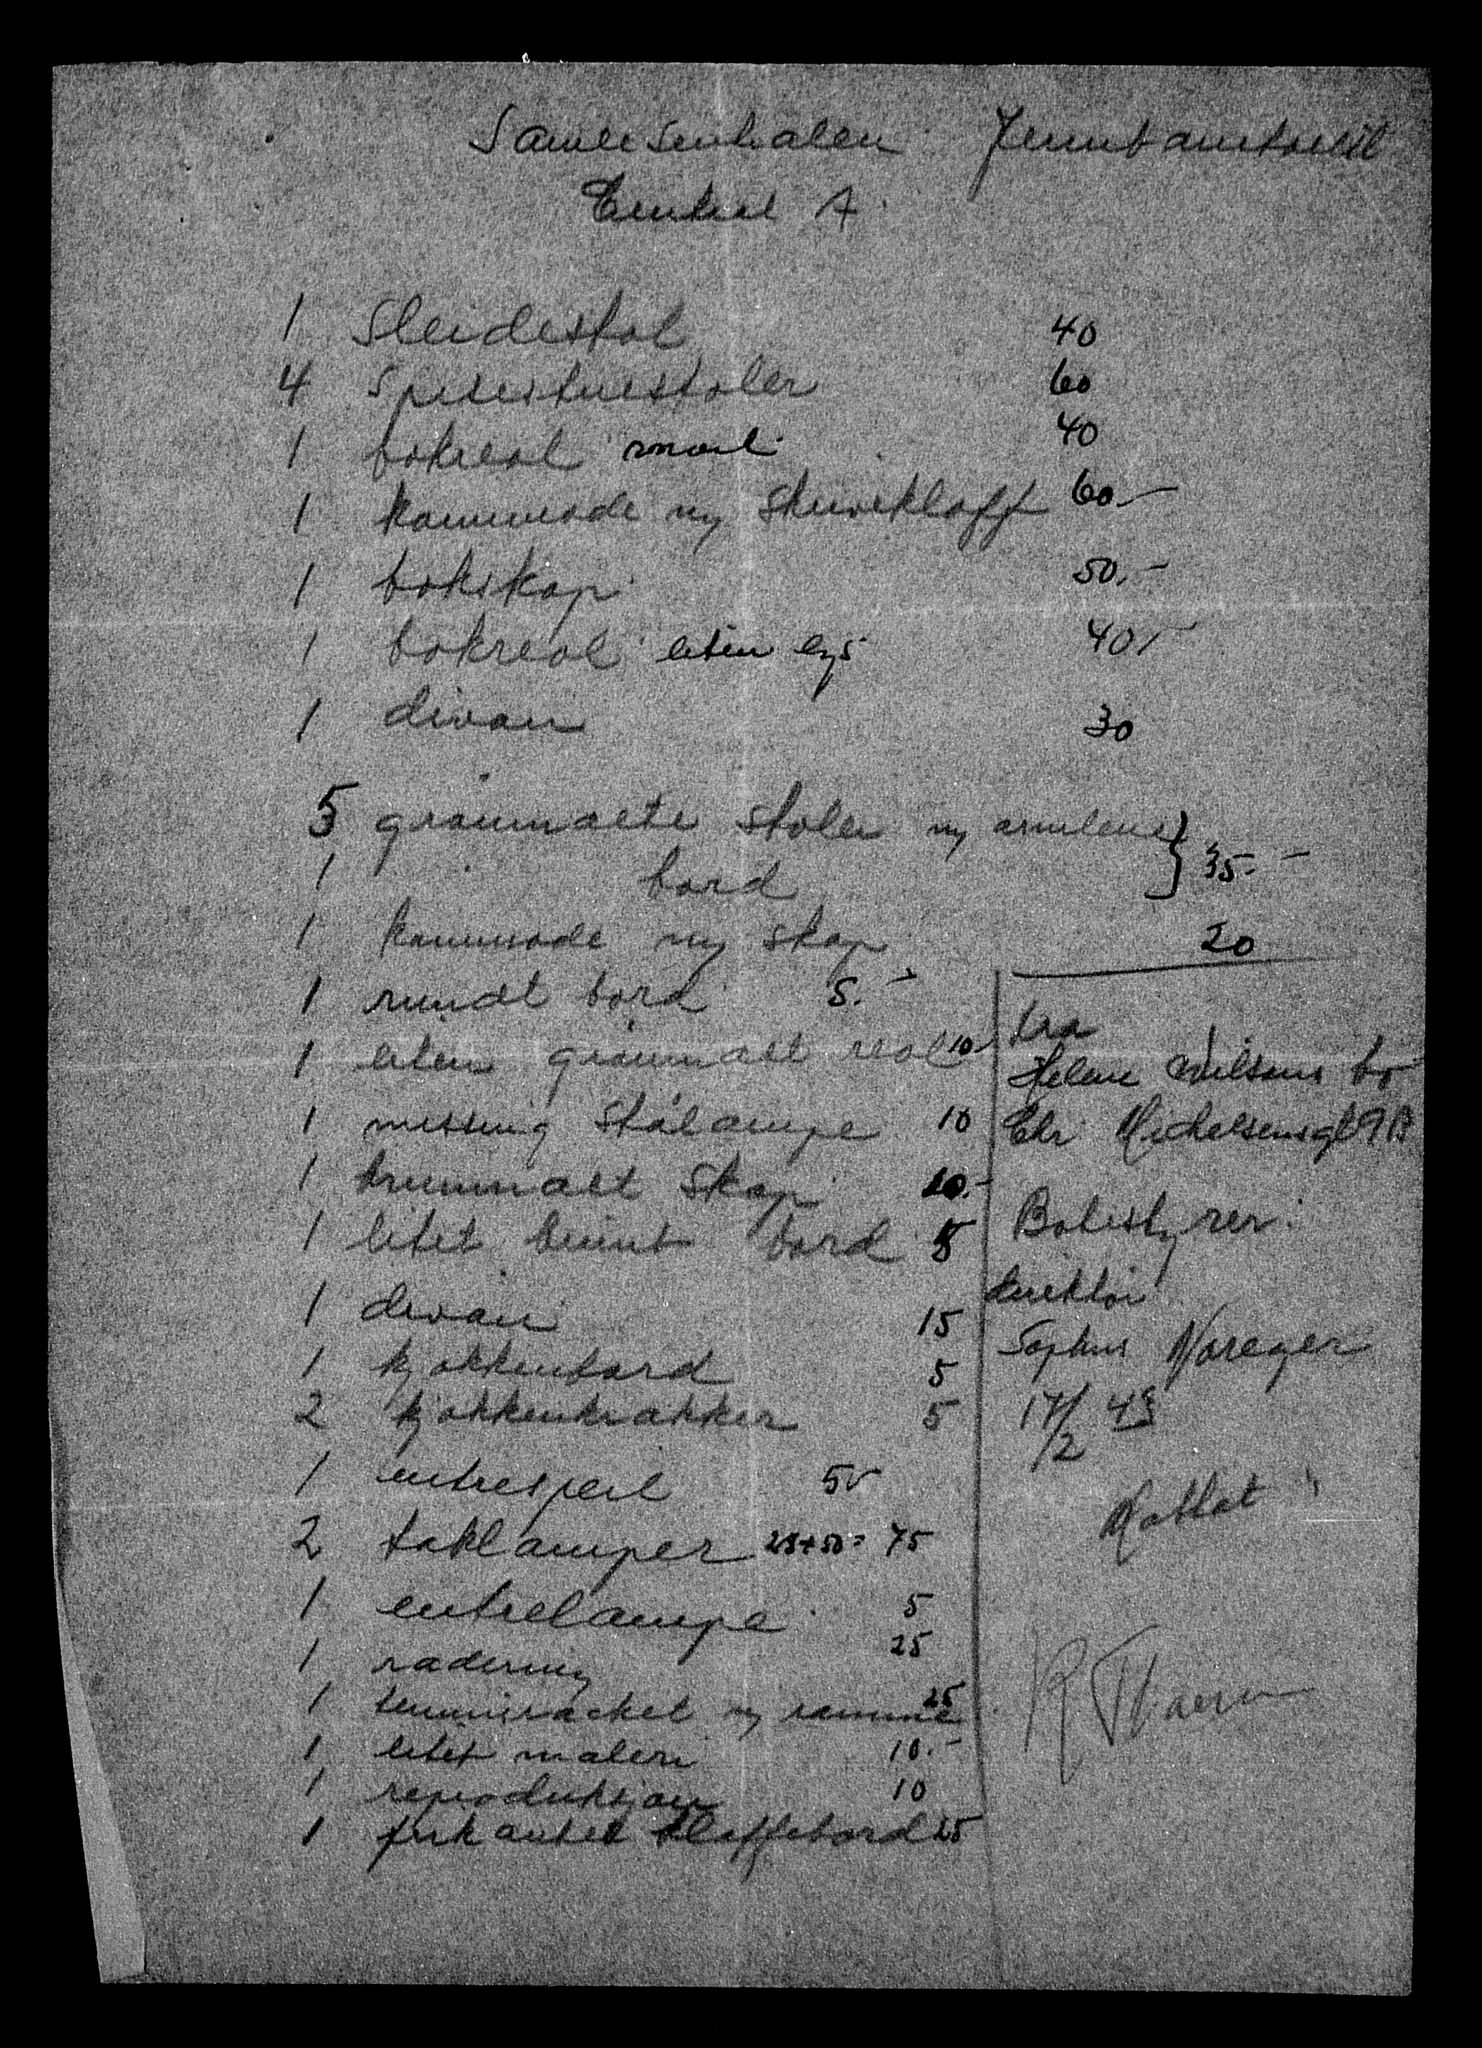 Samlesentralen Jernbanetrevl
Enkel A.
1 Sleidestol 40
4 Spisestuestoler 60
1 bokreol smal 40
1 kommode m/ skuveklaff 60.-
1 bokskap 50.-
1 bokreol liten lys 40.-
1 divan 30
5 gråmalte stoler m/ armlene }
1 " bord } 35.-
1 kommode m/ skap 20
1 rundt bord 5.-
1 liten gråmalt reol 10.-
1 messing stålampe 10
1 brunmalt skap 10.-
1 litet brunt bord 5
1 divan 15
1 kjøkkenbord 5
2 kjøkkenkrakker 5
1 entrespeil 5.-
2 taklamper 25+50= 75
1 entrelampe 5
1 radering 25
1 tennisracket m/ ramme 25
1 litet maleri 10.-
1 reproduksjon 10
1 firkantet klaffebord 25
fra
Helene Nilsens bo
Chr Michelsensgt 9 B
Bobestyrer:
direktør
Sophus Woreger
17/2 43
Mottat:
R Thaern